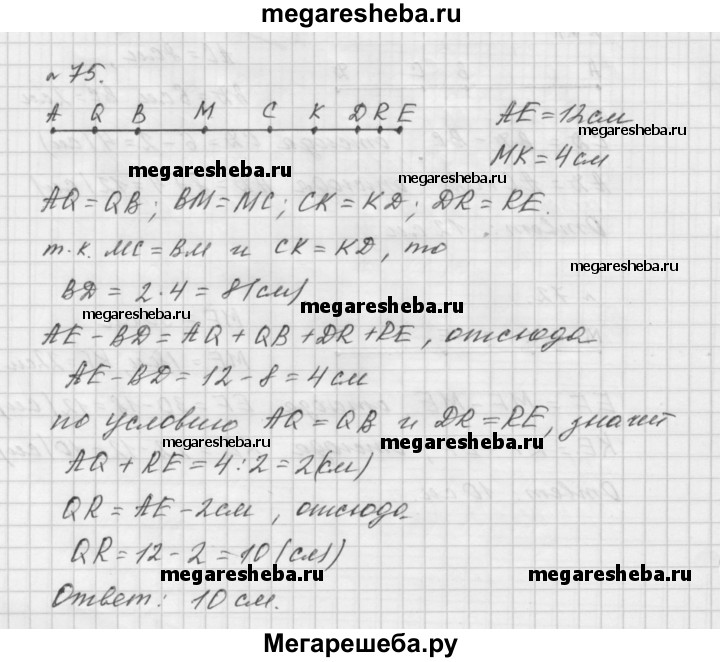 megaresheba.ru
№ 75.
A Q B M C K D R E
AE = 12 см
megaresheba.ru
MK = 4 см
megaresheba.ru
megaresheba.ru
AQ = QB; BM = MC; CK = KD; DR = RE.
т.к. MC = BM и CK = KD, то
megaresheba.ru
BD = 2 · 4 = 8 (см)
megaresheba.ru
AE - BD = AQ + QB + DR + RE, отсюда
AE - BD = 12 - 8 = 4 см
по условию AQ = QB и DR = RE, значит
megaresheba.ru
megaresheba.ru
AQ + RE = 4 : 2 = 2 (см)
QR = AE - 2 см, отсюда
QR = 12 - 2 = 10 (см)
megaresheba.ru
megaresheba.ru
Ответ: 10 см.
Мегарешеба.ру